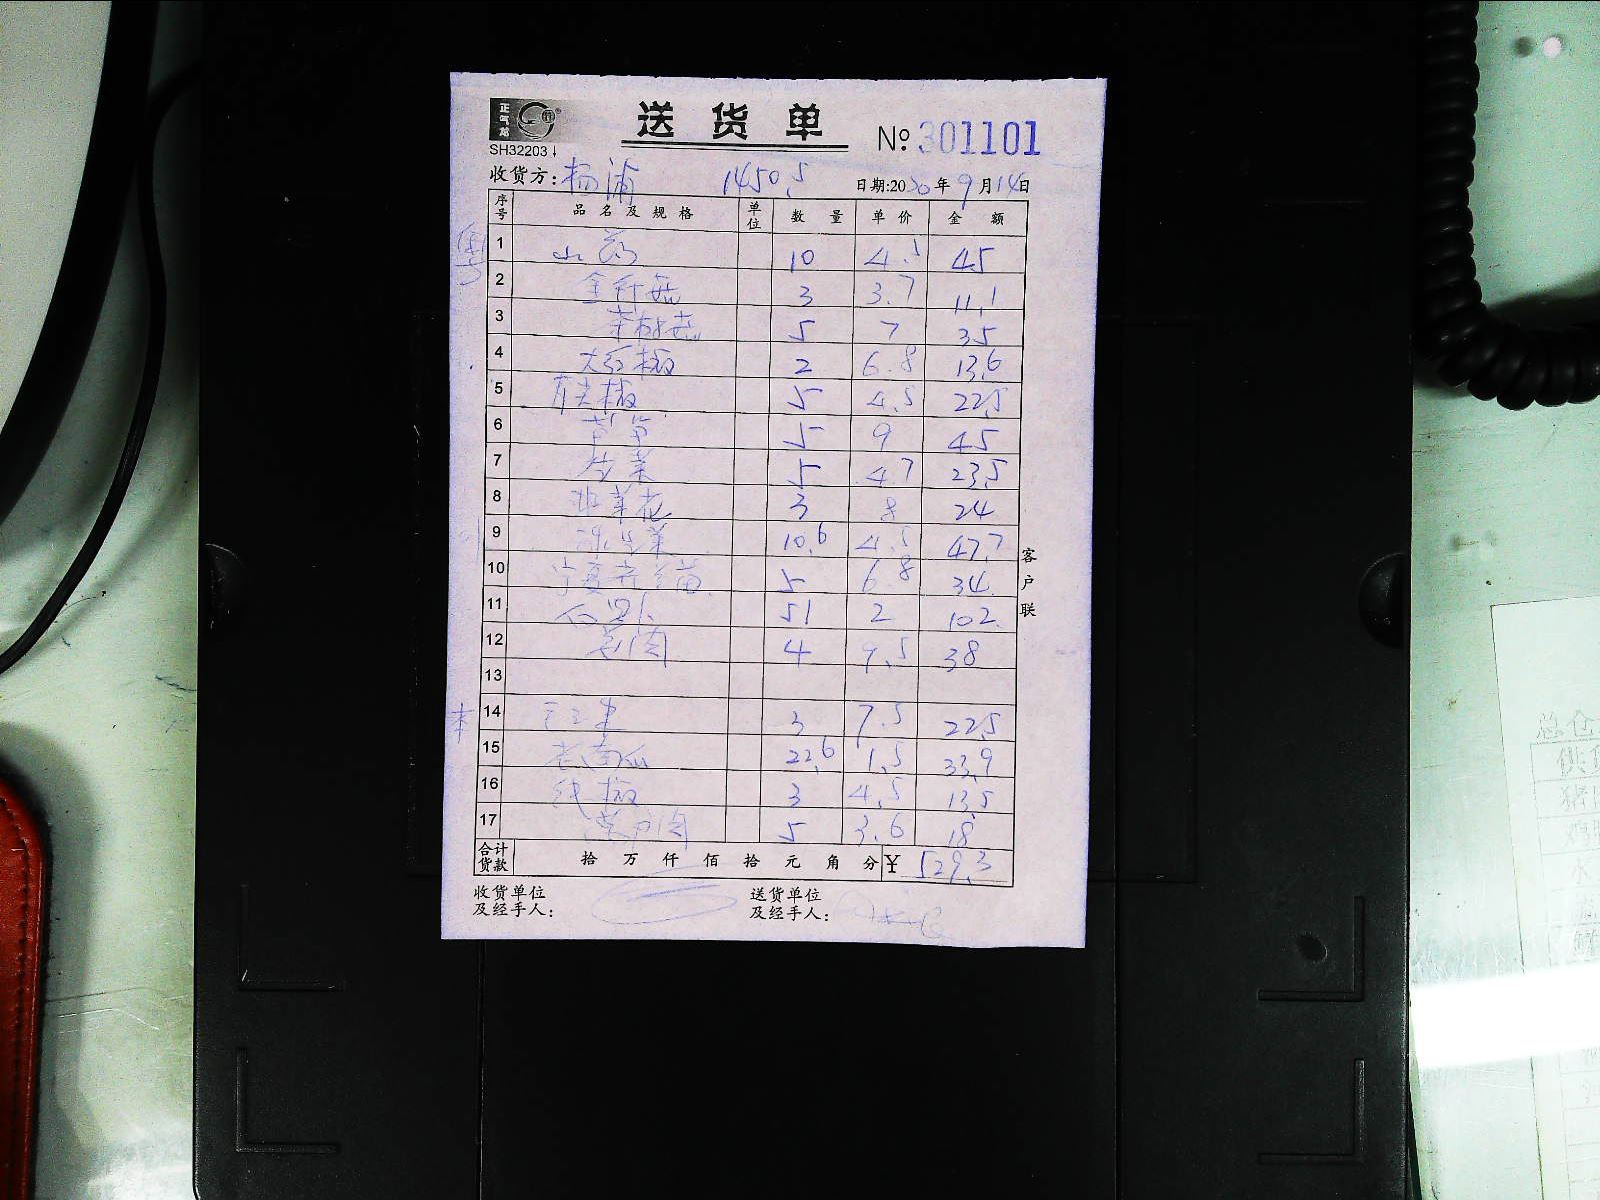 正气龙
送货单
No. 301101
SH32203↓
收货方: 杨浦 1450.5 日期:2020年9月14日
序号 品名及规格 单位 数量 单价 金额
粤
1 山药 10 4.5 45
2 金针菇 3 3.7 11.1
3 茶树菇 5 7 35
4 大红椒 2 6.8 13.6
5 杭尖椒 5 4.5 22.5
6 莴笋 5 9 45
7 生菜 5 4.7 23.5
8 韭菜花 3 8 24
9 菜 10.6 4.5 47.7
10 宁夏菜苗 5 6.8 34
11 白罗卜 51 2 102
12 姜肉 4 9.5 38
13
本
14 3 7.5 22.5
15 老南瓜 22.6 1.5 33.9
16 线椒 3 4.5 13.5
17 肉 5 3.6 18
合计货款 拾 万 仟 佰 拾 元 角 分 ¥ 529.3
收货单位及经手人:
送货单位及经手人:
客户联
总仓
供货